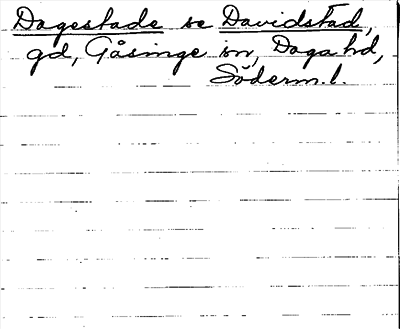 Dagestade se Davidstad,
gd, Gåsinge sn, Daga hd,
Söderm. l.